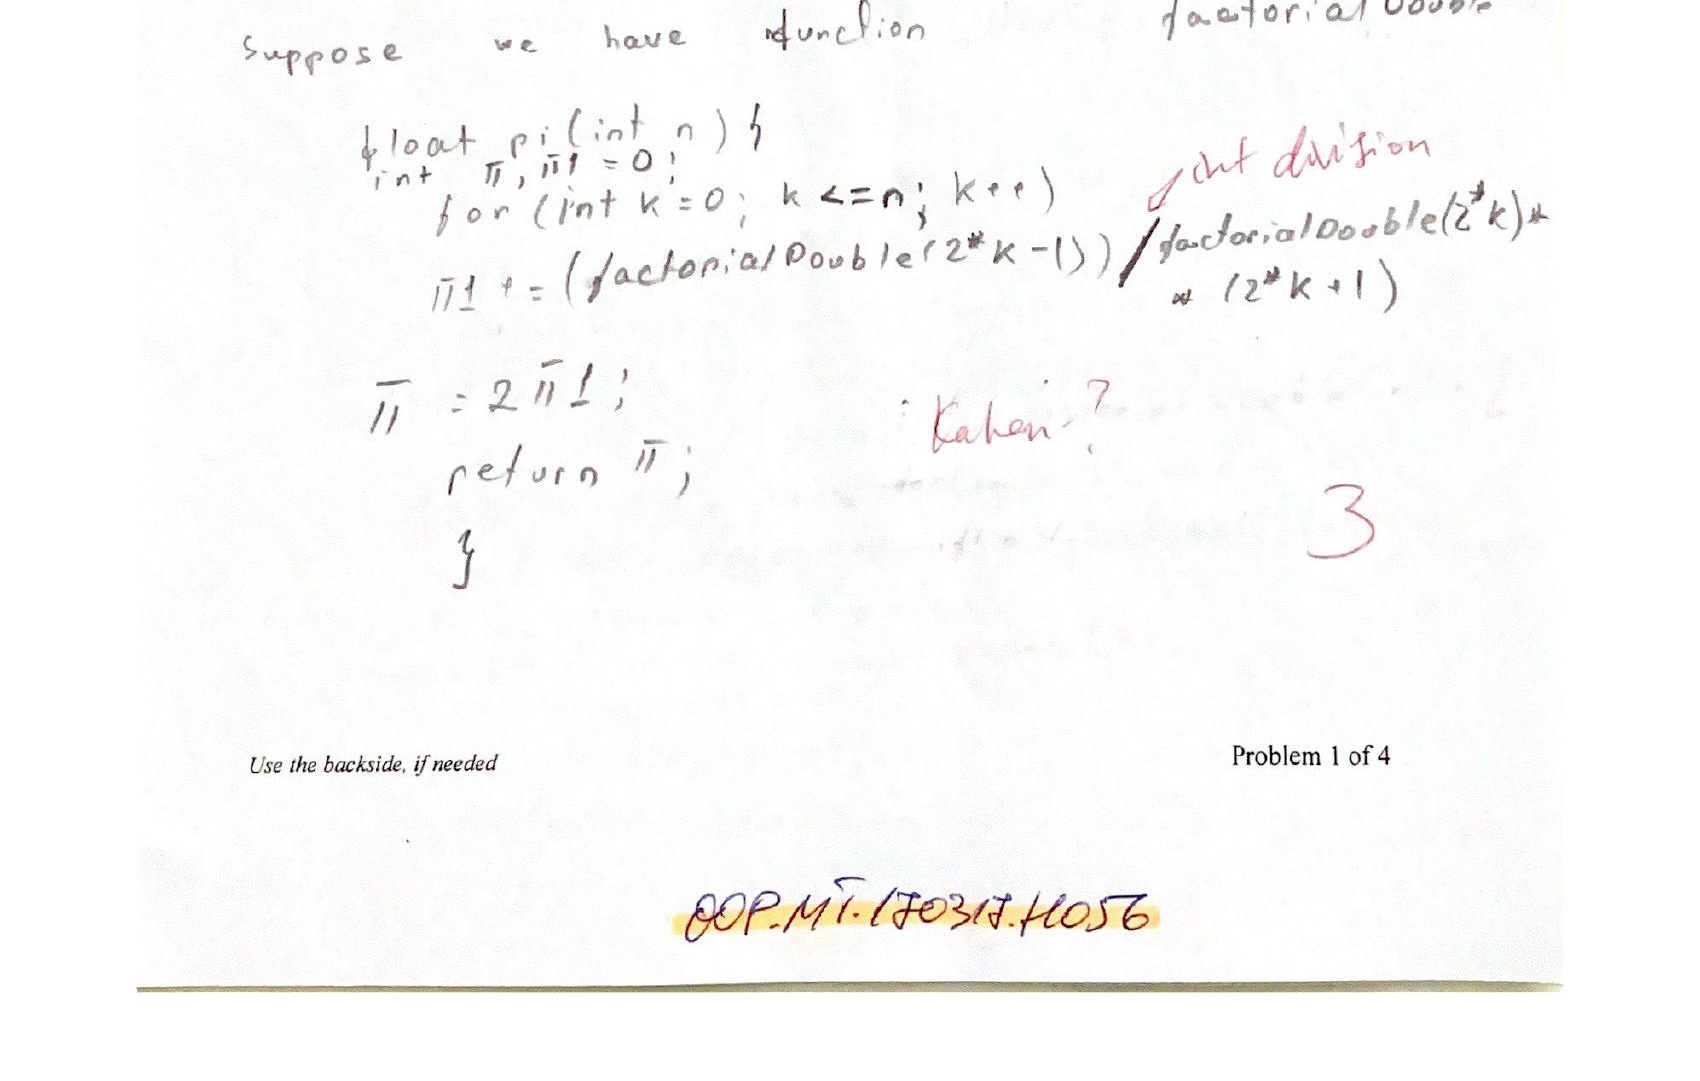 Suppose we have function factorialDouble
float pi(int n) {
int π, π1 = 0;
for (int k=0; k <=n; k++)
int division
π1 += (factorialDouble(2*k-1))/factorialDouble(2*k)*
* (2*k+1)
π = 2π1;
Kahan?
return π;
3
}
Use the backside, if needed
Problem 1 of 4
OOP.MT.170317.H056